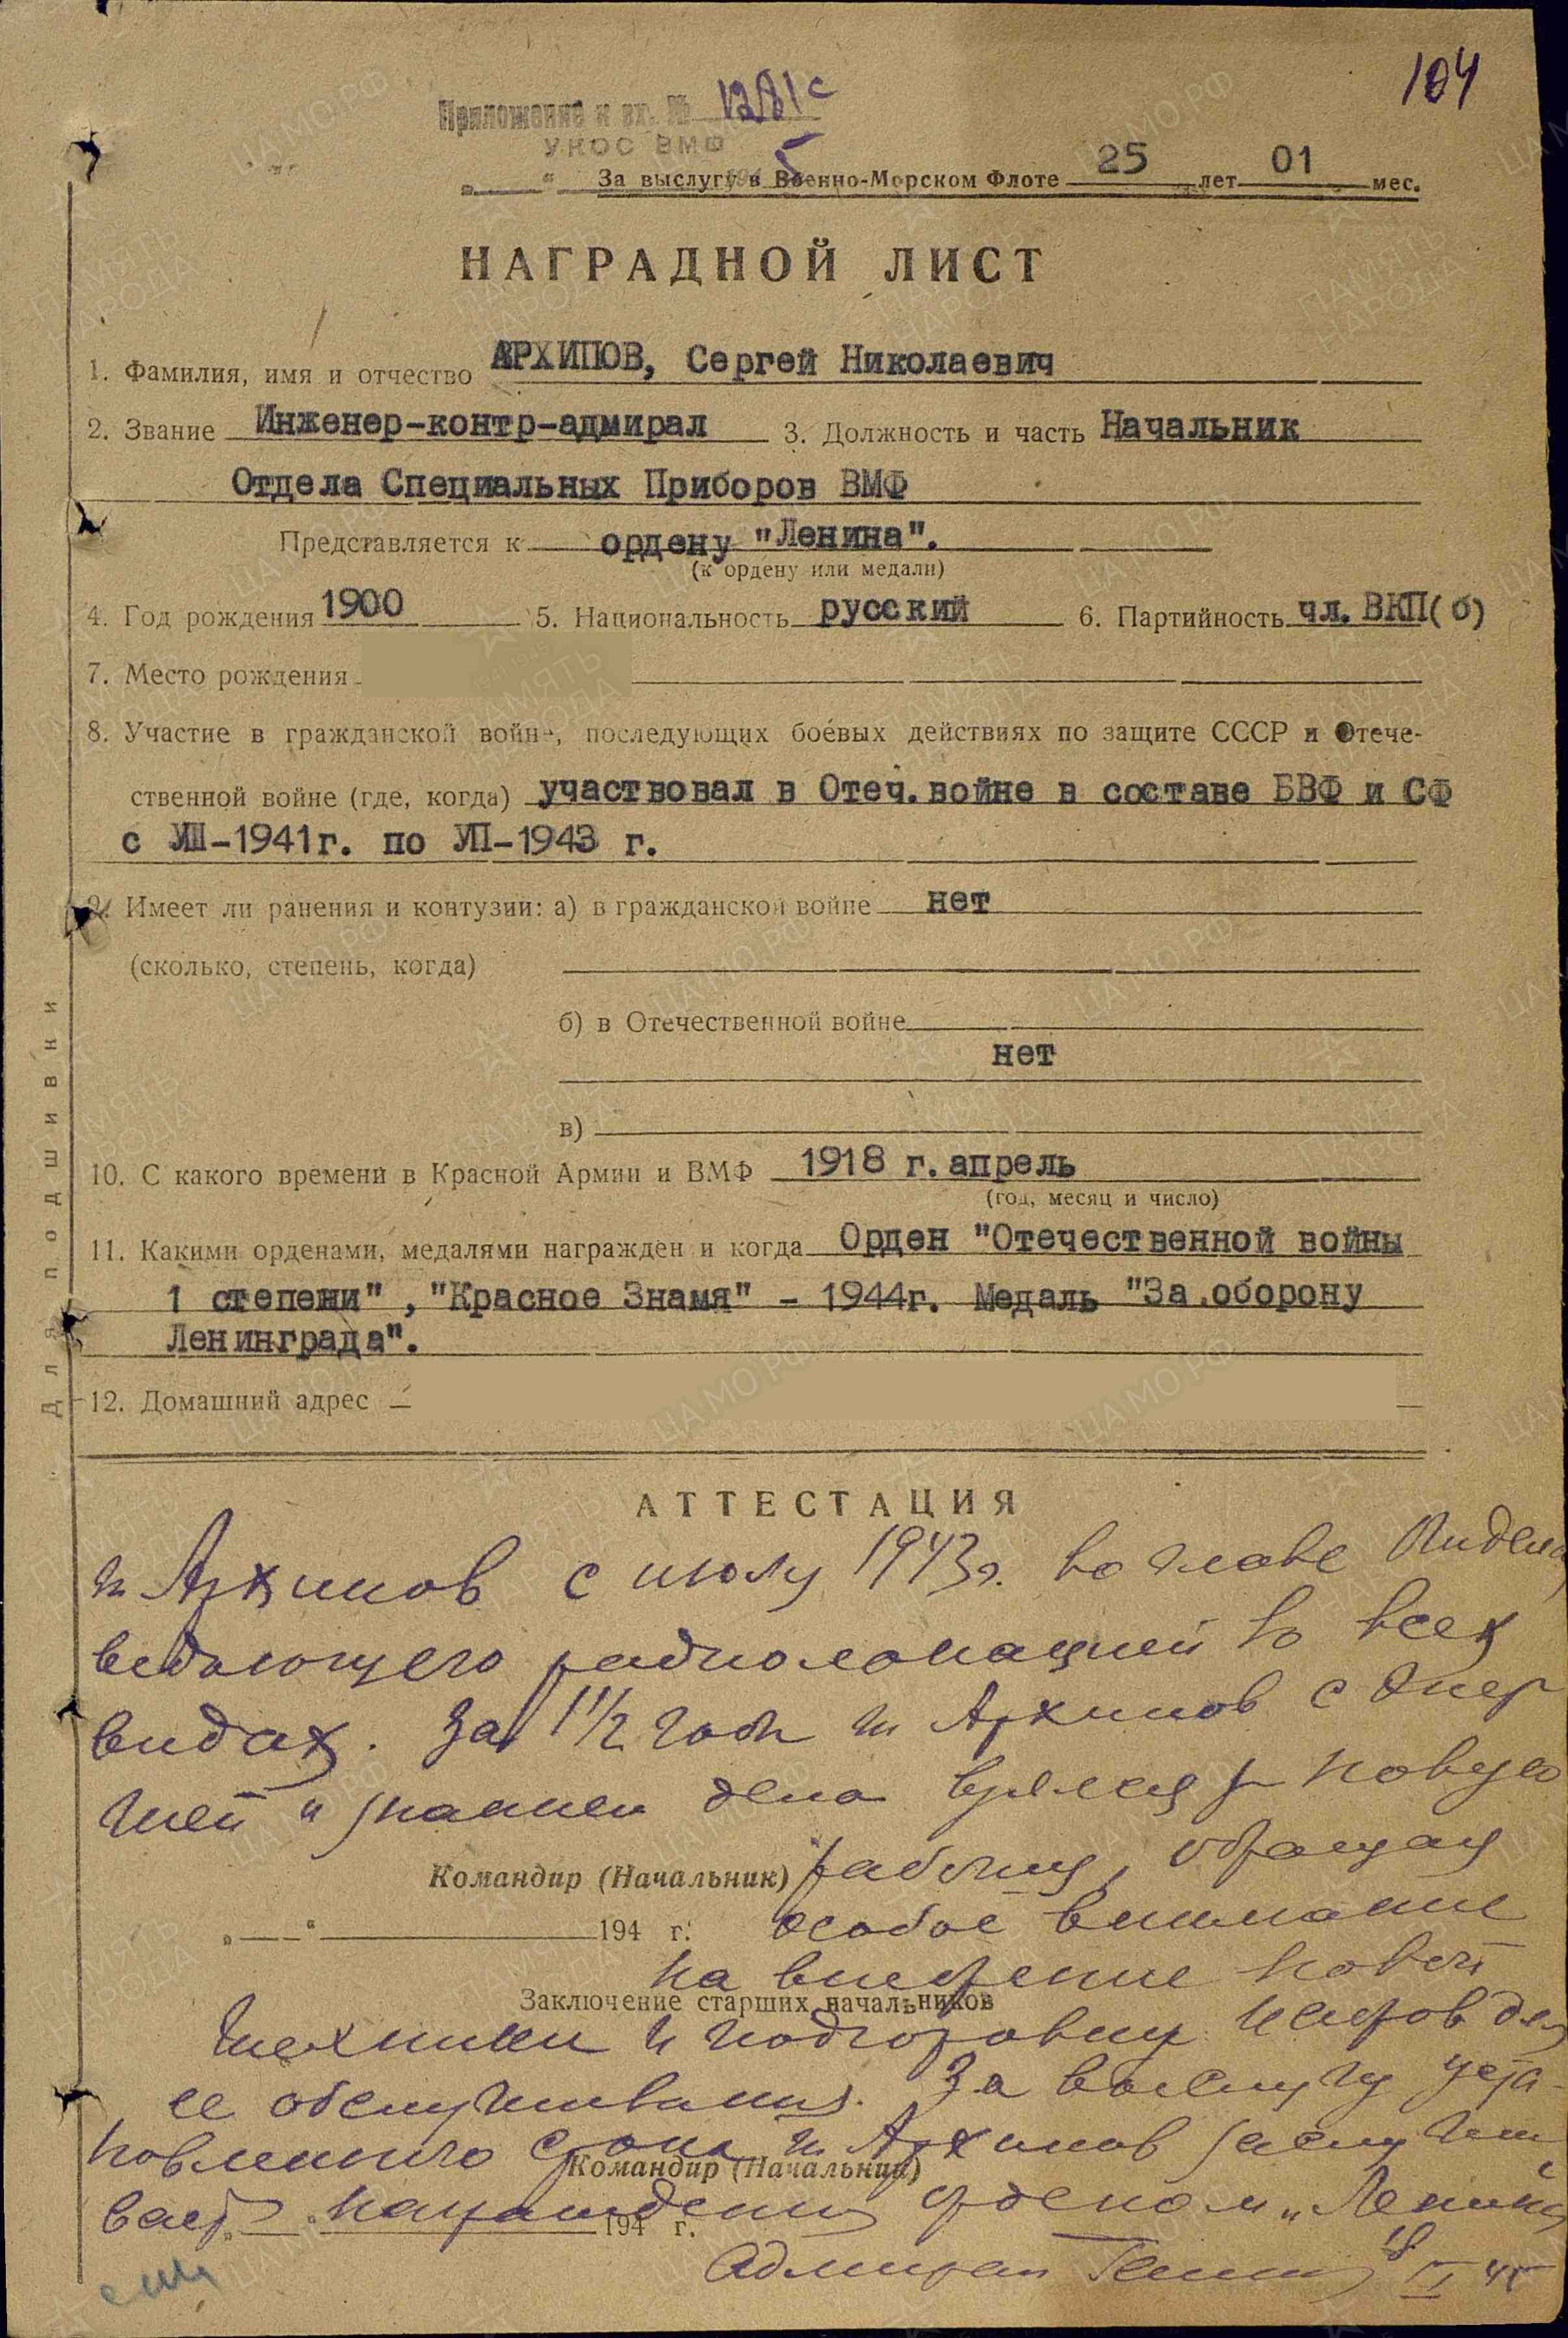 104
Приложение к вх. № 1281с
УКОС ВМФ
„ “ 194 5
За выслугу в Военно-Морском Флоте 25 лет 01 мес.
НАГРАДНОЙ ЛИСТ
1. Фамилия, имя и отчество АРХИПОВ, Сергей Николаевич
2. Звание Инженер-контр-адмирал 3. Должность и часть Начальник
Отдела Специальных Приборов ВМФ
Представляется к ордену "Ленина".
(к ордену или медали)
4. Год рождения 1900 5. Национальность русский 6. Партийность чл. ВКП(б)
7. Место рождения
8. Участие в гражданской войне, последующих боевых действиях по защите СССР и Отече-
ственной войне (где, когда) участвовал в Отеч.войне в составе БВФ и СФ
с УШ-1941г. по УП-1943 г.
9. Имеет ли ранения и контузии: а) в гражданской войне нет
(сколько, степень, когда)
б) в Отечественной войне
нет
в)
10. С какого времени в Красной Армии и ВМФ 1918 г. апрель
(год, месяц и число)
11. Какими орденами, медалями награжден и когда Орден "Отечественной войны
1 степени", "Красное Знамя" - 1944г. Медаль "За оборону
Ленинграда".
12. Домашний адрес
Для подшивки
АТТЕСТАЦИЯ
т Архипов с июля 1943г. во главе Отдела,
ведающего радиолокацией во всех
видах. За 1 1/2 года т Архипов с энер
гией и знанием дела взялся за новую
Командир (Начальник) работу, обращая
„ “ 194 г. особое внимание
на внедрение новой
Заключение старших начальников
техники и подготовку кадров для
ее обслуживания. За выслугу уста-
новленного срока т Архипов заслужи
Командир (Начальник)
вает награждения орденом „Ленина
„ “ 194 г.
Адмирал 45